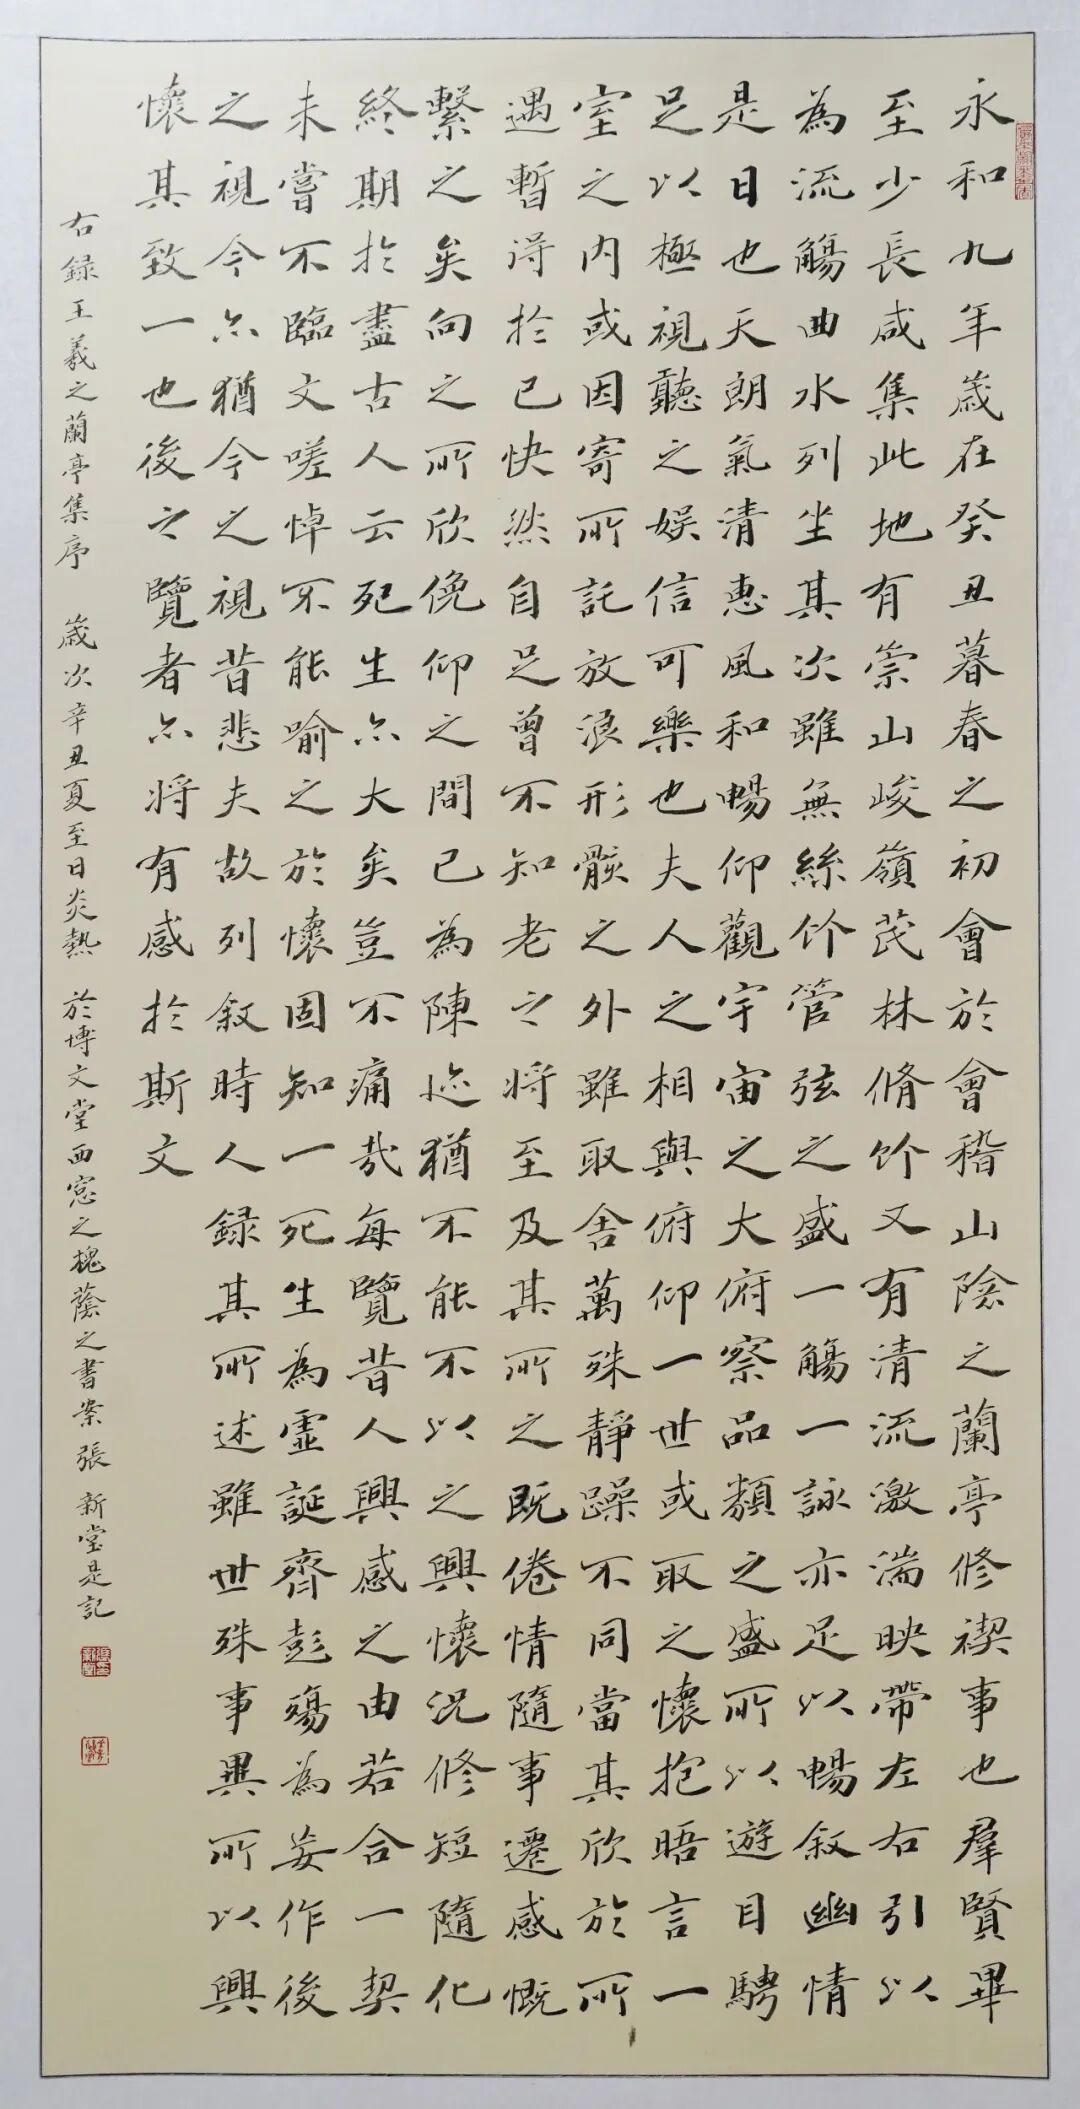 永和九年歲在癸丑暮春之初會於會稽山陰之蘭亭修禊事也羣賢畢
至少長咸集此地有崇山峻嶺茂林脩竹又有清流激湍映帶左右引以
為流觴曲水列坐其次雖無絲竹管弦之盛一觴一詠亦足以暢敘幽情
是日也天朗氣清惠風和暢仰觀宇宙之大俯察品類之盛所以遊目騁
足以極視聽之娛信可樂也夫人之相與俯仰一世或取之懷抱晤言一
室之內或因寄所託放浪形骸之外雖取舍萬殊靜躁不同當其欣於所
遇暫得於己快然自足曾不知老之將至及其所之既倦情隨事遷感慨
繫之矣向之所欣俛仰之間已為陳迹猶不能不以之興懷況修短隨化
終期於盡古人云死生亦大矣豈不痛哉每覽昔人興感之由若合一契
未嘗不臨文嗟悼不能喻之於懷固知一死生為虛誕齊彭殤為妄作後
之視今亦猶今之視昔悲夫故列敘時人錄其所述雖世殊事異所以興
懷其致一也後之覽者亦將有感於斯文
右録王羲之蘭亭集序 歲次辛丑夏至日炎熱 於博文堂西窗之槐蔭之書案張新堂是記